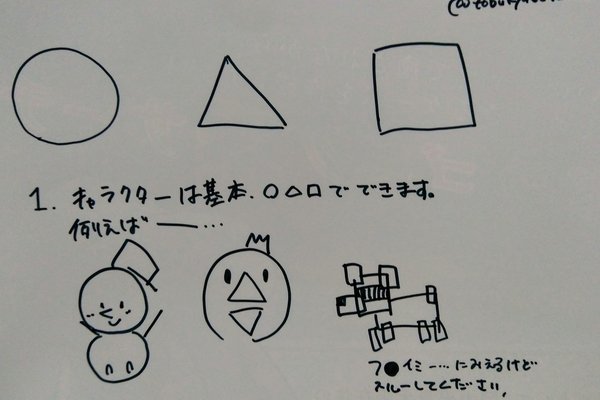 1. キャラクターは基本、○△□でできます。
例えば――…
フ●イミー…にみえるけど
スルーしてください。